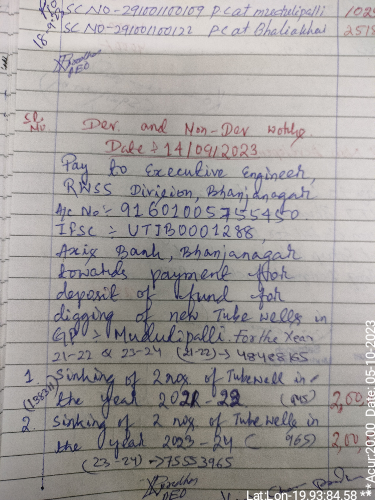 SC NO-291001100109 PC at mudulipalli 1025
SC NO-291001100122 PC at Bhaliakhai 251
Sl. No
Dev. and Non-Dev working
Date :- 14/09/2023
Pay to Executive Engineer,
RWSS Division, Bhanjanagar
A/c No :- 91601005755450
IFSC :- UTIB0001288,
Axis Bank, Bhanjanagar
towards payment for
deposit of fund for
digging of new Tube wells in
GP :- Mudulipalli. For the Year
21-22 & 23-24 (21-22) → 48488165
1. Sinking of 2 nos. of Tubewell in
the year 2021-22 2,00,
2. Sinking of 2 nos. of Tube wells in
the year 2023-24 ( 965) 2,00,
(23-24) → 75553965
Lat Lon-19.93:84.58 ** Acu:20.00 Date:05-10-2023